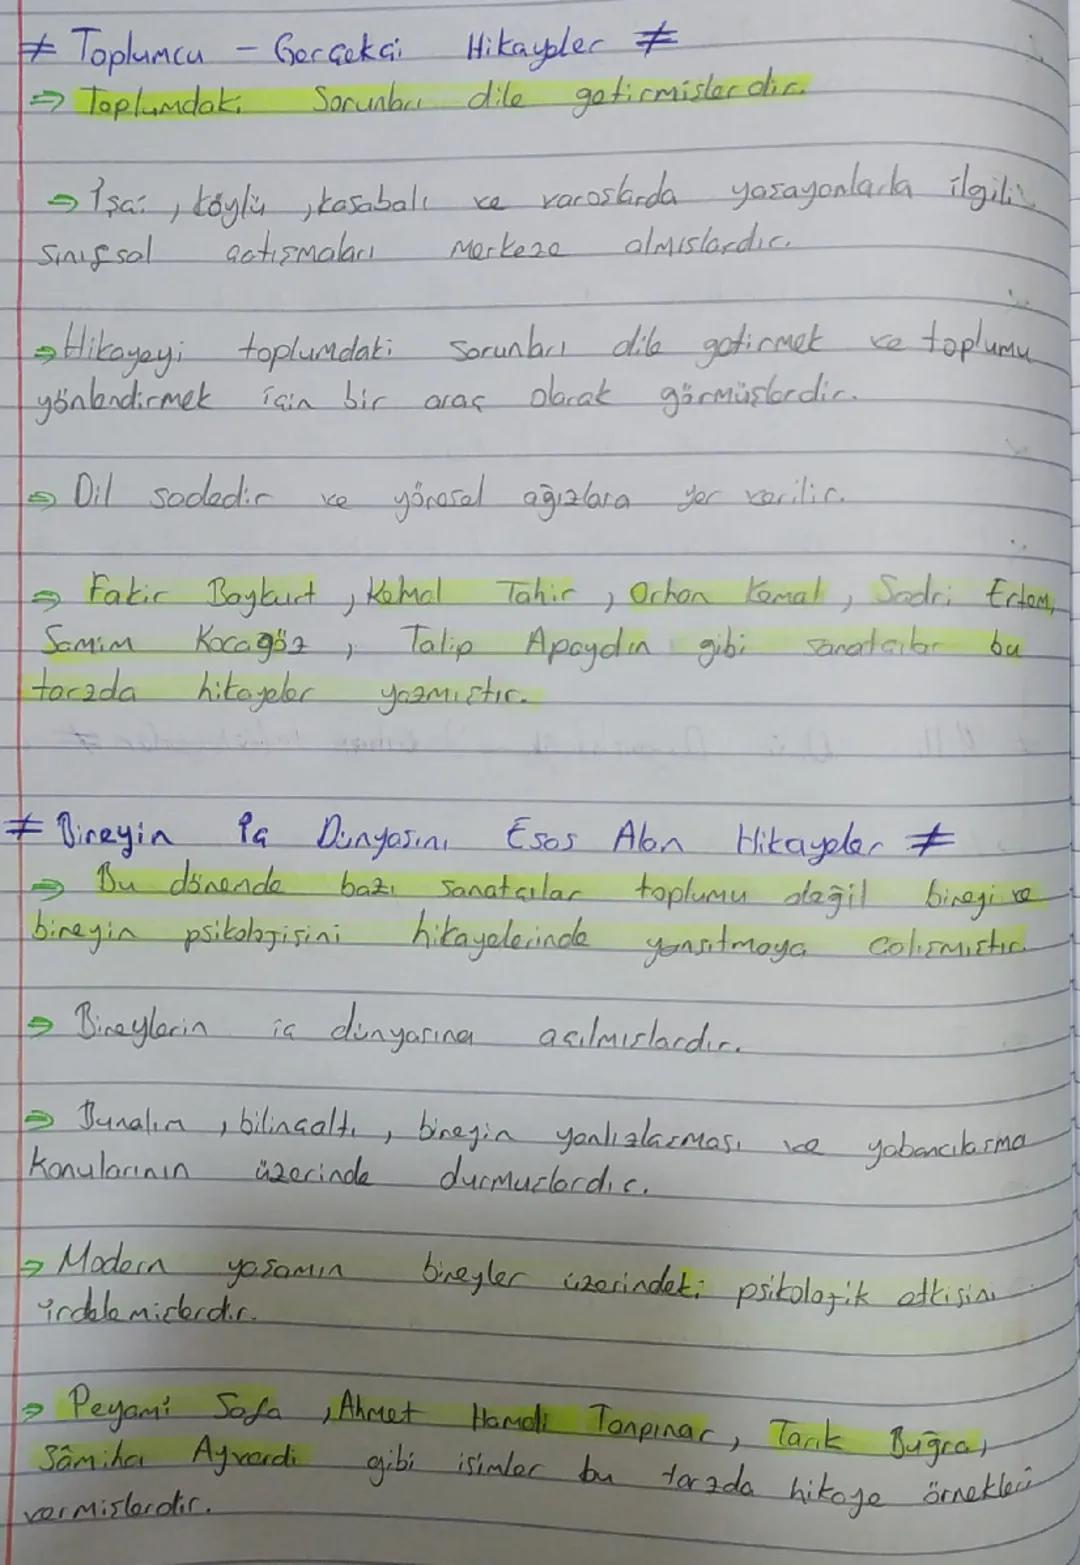 ≠ Toplumcu - Gerçekçi Hikayeler ≠
⇒ Toplumdaki Sorunları dile getirmişlerdir.
⇒ İşçi, köylü, kasabalı ve varoşlarda yaşayanlarla ilgili
sınıfsal çatışmaları merkeze almışlardır.
⇒ Hikayeyi toplumdaki sorunları dile getirmek ve toplumu
yönlendirmek için bir araç olarak görmüşlerdir.
⇒ Dil sadedir ve yöresel ağızlara yer verilir.
⇒ Fakir Baykurt, Kemal Tahir, Orhan Kemal, Sadri Ertem,
Samim Kocagöz, Talip Apaydın gibi sanatçılar bu
tarzda hikayeler yazmıştır.
≠ Bireyin İç Dünyasını Esas Alan Hikayeler ≠
⇒ Bu dönemde bazı sanatçılar toplumu değil bireyi ve
bireyin psikolojisini hikayelerinde yansıtmaya çalışmıştır.
⇒ Bireylerin iç dünyasına açılmışlardır.
⇒ Bunalım, bilinçaltı, bireyin yanlızlaşması ve yabancılaşma
konularının üzerinde durmuşlardır.
⇒ Modern yaşamın bireyler üzerindeki psikolojik etkisini
irdelemişlerdir.
⇒ Peyami Safa, Ahmet Hamdi Tanpınar, Tarık Buğra,
Sâmiha Ayverdi gibi isimler bu tarzda hikaye örnekleri
vermişlerdir.